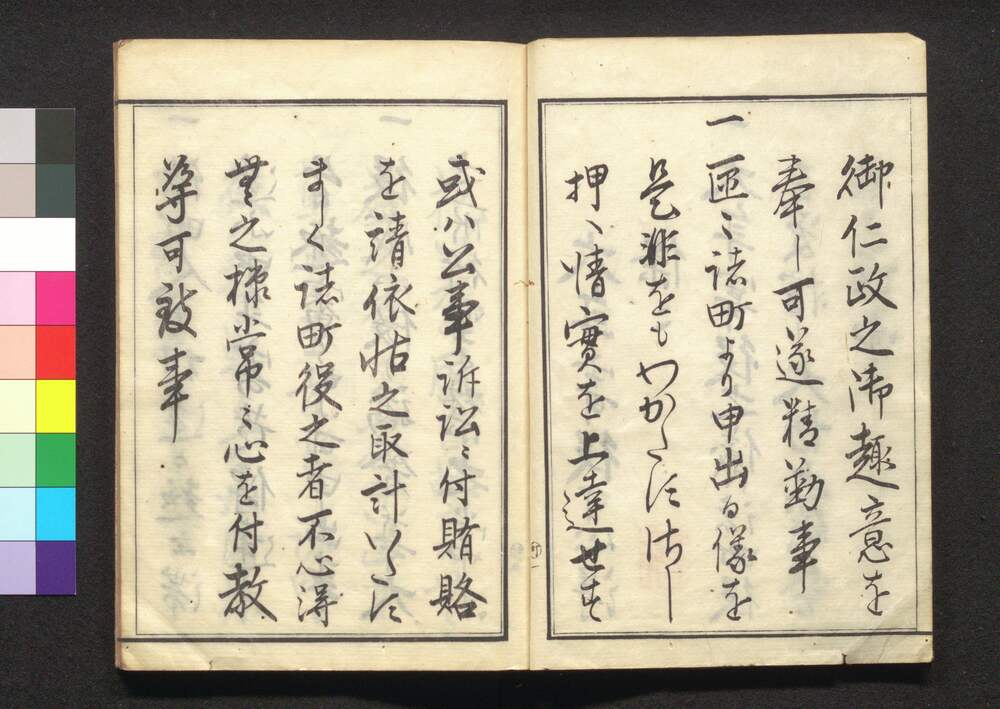 御仁政之御趣意を
奉し可遂精勤事
一 区々諸町より申出る儀を
是非をもわかたす
押へ情實を上達せす
或ハ公事訴訟ニ付賄賂
を請依怙之取計いたす
ましく諸町役之者不心得
無之様常ニ心を付教
導可致事